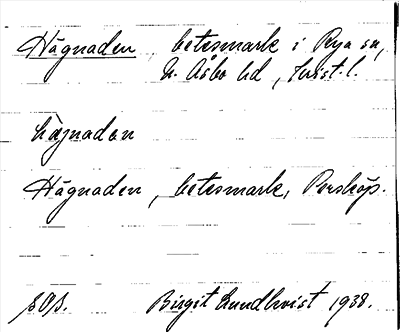 Hägnaden, betesmark i Rya sn,
N. Åsbo hd, Krist. l.
hägnadan
Hägnaden, betesmark, Perstorp.
Birgit Lundkvist 1938.